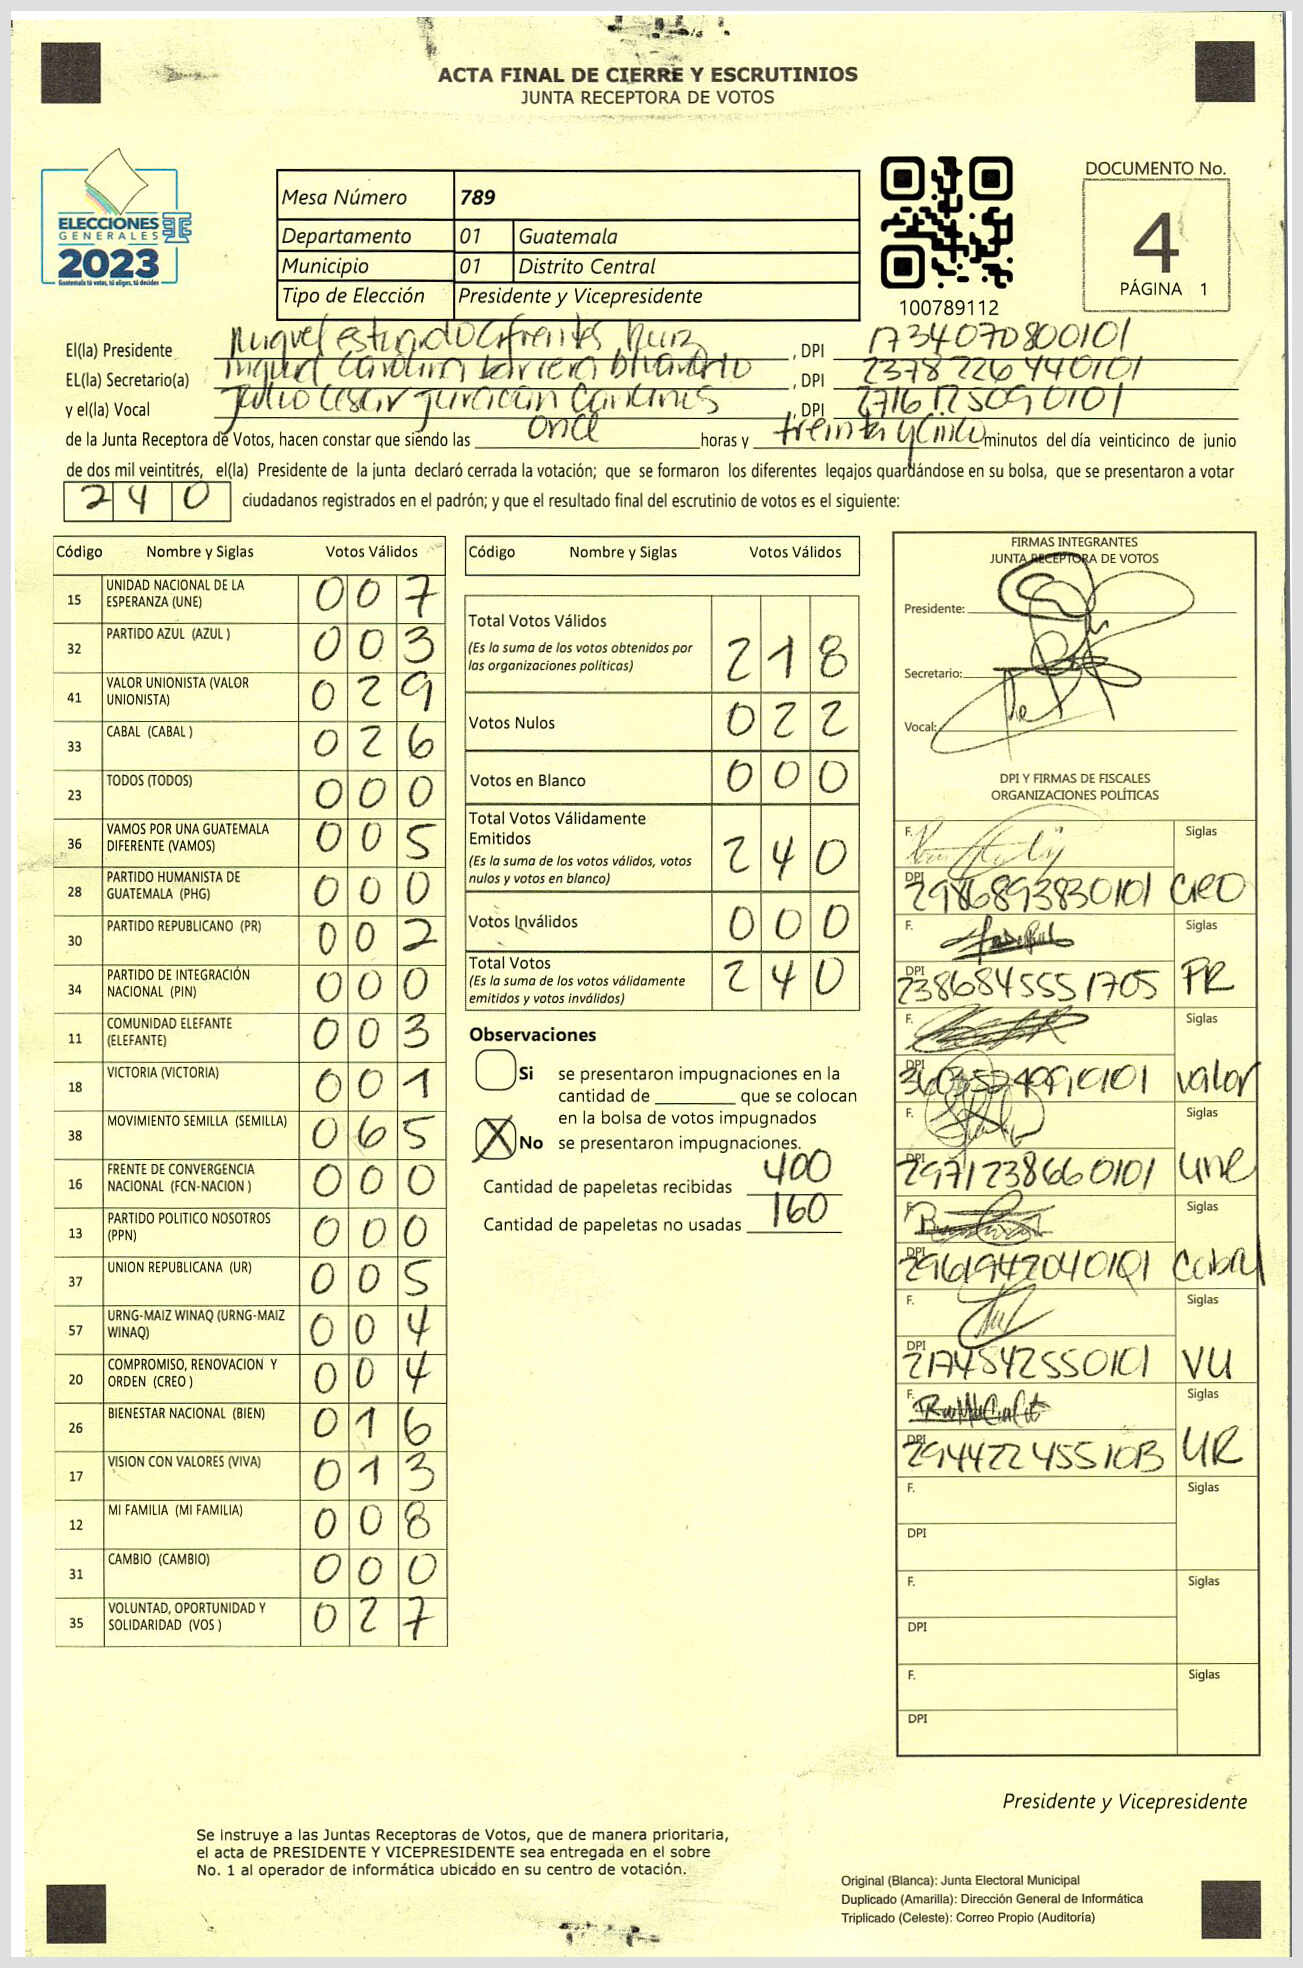 ACTA FINAL DE CIERRE Y ESCRUTINIOS
JUNTA RECEPTORA DE VOTOS
ELECCIONES
GENERALES
2023
Guatemala tú votas, tú eliges, tú decides
Mesa Número 789
Departamento 01 Guatemala
Municipio 01 Distrito Central
Tipo de Elección Presidente y Vicepresidente
100789112
DOCUMENTO No.
4
PÁGINA 1
El(la) Presidente Ruiz , DPI 1734070800101
EL(la) Secretario(a) Carolina Barrera , DPI 2378226440101
y el(la) Vocal Julio Cesar , DPI 2716125090101
de la Junta Receptora de Votos, hacen constar que siendo las once horas y treinta y cinco minutos del día veinticinco de junio
de dos mil veintitrés, el(la) Presidente de la junta declaró cerrada la votación; que se formaron los diferentes legajos guardándose en su bolsa, que se presentaron a votar
240 ciudadanos registrados en el padrón; y que el resultado final del escrutinio de votos es el siguiente:
Código Nombre y Siglas Votos Válidos
15 UNIDAD NACIONAL DE LA ESPERANZA (UNE) 007
32 PARTIDO AZUL (AZUL ) 003
41 VALOR UNIONISTA (VALOR UNIONISTA) 029
33 CABAL (CABAL ) 026
23 TODOS (TODOS) 000
36 VAMOS POR UNA GUATEMALA DIFERENTE (VAMOS) 005
28 PARTIDO HUMANISTA DE GUATEMALA (PHG) 000
30 PARTIDO REPUBLICANO (PR) 002
34 PARTIDO DE INTEGRACIÓN NACIONAL (PIN) 000
11 COMUNIDAD ELEFANTE (ELEFANTE) 003
18 VICTORIA (VICTORIA) 001
38 MOVIMIENTO SEMILLA (SEMILLA) 065
16 FRENTE DE CONVERGENCIA NACIONAL (FCN-NACION ) 000
13 PARTIDO POLITICO NOSOTROS (PPN) 000
37 UNION REPUBLICANA (UR) 005
57 URNG-MAIZ WINAQ (URNG-MAIZ WINAQ) 004
20 COMPROMISO, RENOVACION Y ORDEN (CREO ) 004
26 BIENESTAR NACIONAL (BIEN) 016
17 VISION CON VALORES (VIVA) 013
12 MI FAMILIA (MI FAMILIA) 008
31 CAMBIO (CAMBIO) 000
35 VOLUNTAD, OPORTUNIDAD Y SOLIDARIDAD (VOS ) 027
Código Nombre y Siglas Votos Válidos
Total Votos Válidos 218
(Es la suma de los votos obtenidos por
las organizaciones políticas)
Votos Nulos 022
Votos en Blanco 000
Total Votos Válidamente
Emitidos 240
(Es la suma de los votos válidos, votos
nulos y votos en blanco)
Votos Inválidos 000
Total Votos 240
(Es la suma de los votos válidamente
emitidos y votos inválidos)
Observaciones
Si se presentaron impugnaciones en la
cantidad de ________ que se colocan
en la bolsa de votos impugnados
X No se presentaron impugnaciones.
Cantidad de papeletas recibidas 400
Cantidad de papeletas no usadas 160
FIRMAS INTEGRANTES
JUNTA RECEPTORA DE VOTOS
Presidente:
Secretario:
Vocal:
DPI Y FIRMAS DE FISCALES
ORGANIZACIONES POLÍTICAS
F. Siglas
DPI 2986893830101 CREO
F. Siglas
DPI 2386845551705 PR
F. Siglas
DPI valor
F. Siglas
DPI 2971238660101 une
F. Siglas
DPI 2961942040101 Cabal
F. Siglas
DPI 2174542550101 VU
F. Siglas
DPI UR
F. Siglas
DPI
F. Siglas
DPI
F. Siglas
DPI
Presidente y Vicepresidente
Se instruye a las Juntas Receptoras de Votos, que de manera prioritaria,
el acta de PRESIDENTE Y VICEPRESIDENTE sea entregada en el sobre
No. 1 al operador de informática ubicado en su centro de votación.
Original (Blanca): Junta Electoral Municipal
Duplicado (Amarilla): Dirección General de Informática
Triplicado (Celeste): Correo Propio (Auditoría)